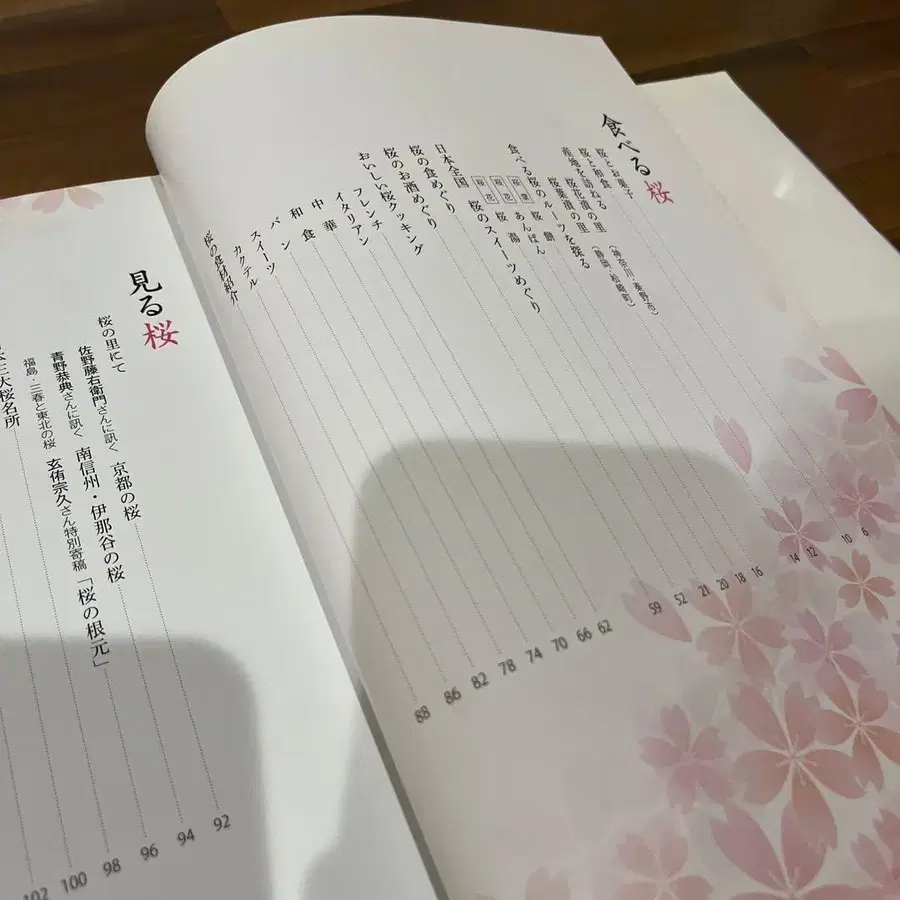 食べる桜
桜とお菓子
桜と和食
産地を訪ねる 桜花漬の里（神奈川・秦野市）
桜葉漬の里（静岡・松崎町）
食べる桜のルーツを探る
桜葉 桜餅
桜花 あんぱん
桜花 桜湯
日本全国 桜のスイーツめぐり
桜の食めぐり
桜のお酒めぐり
おいしい桜クッキング
フレンチ
イタリアン
中華
和食
パン
スイーツ
カクテル
桜の食材紹介
6
10
12
14
16
18
20
21
52
59
62
66
70
74
78
82
86
88
見る桜
桜の里にて
佐野藤右衛門さんに訊く 京都の桜
青野恭典さんに訊く 南信州・伊那谷の桜
福島・三春と東北の桜 玄侑宗久さん特別寄稿「桜の根元」
三大桜名所
92
94
96
98
100
102